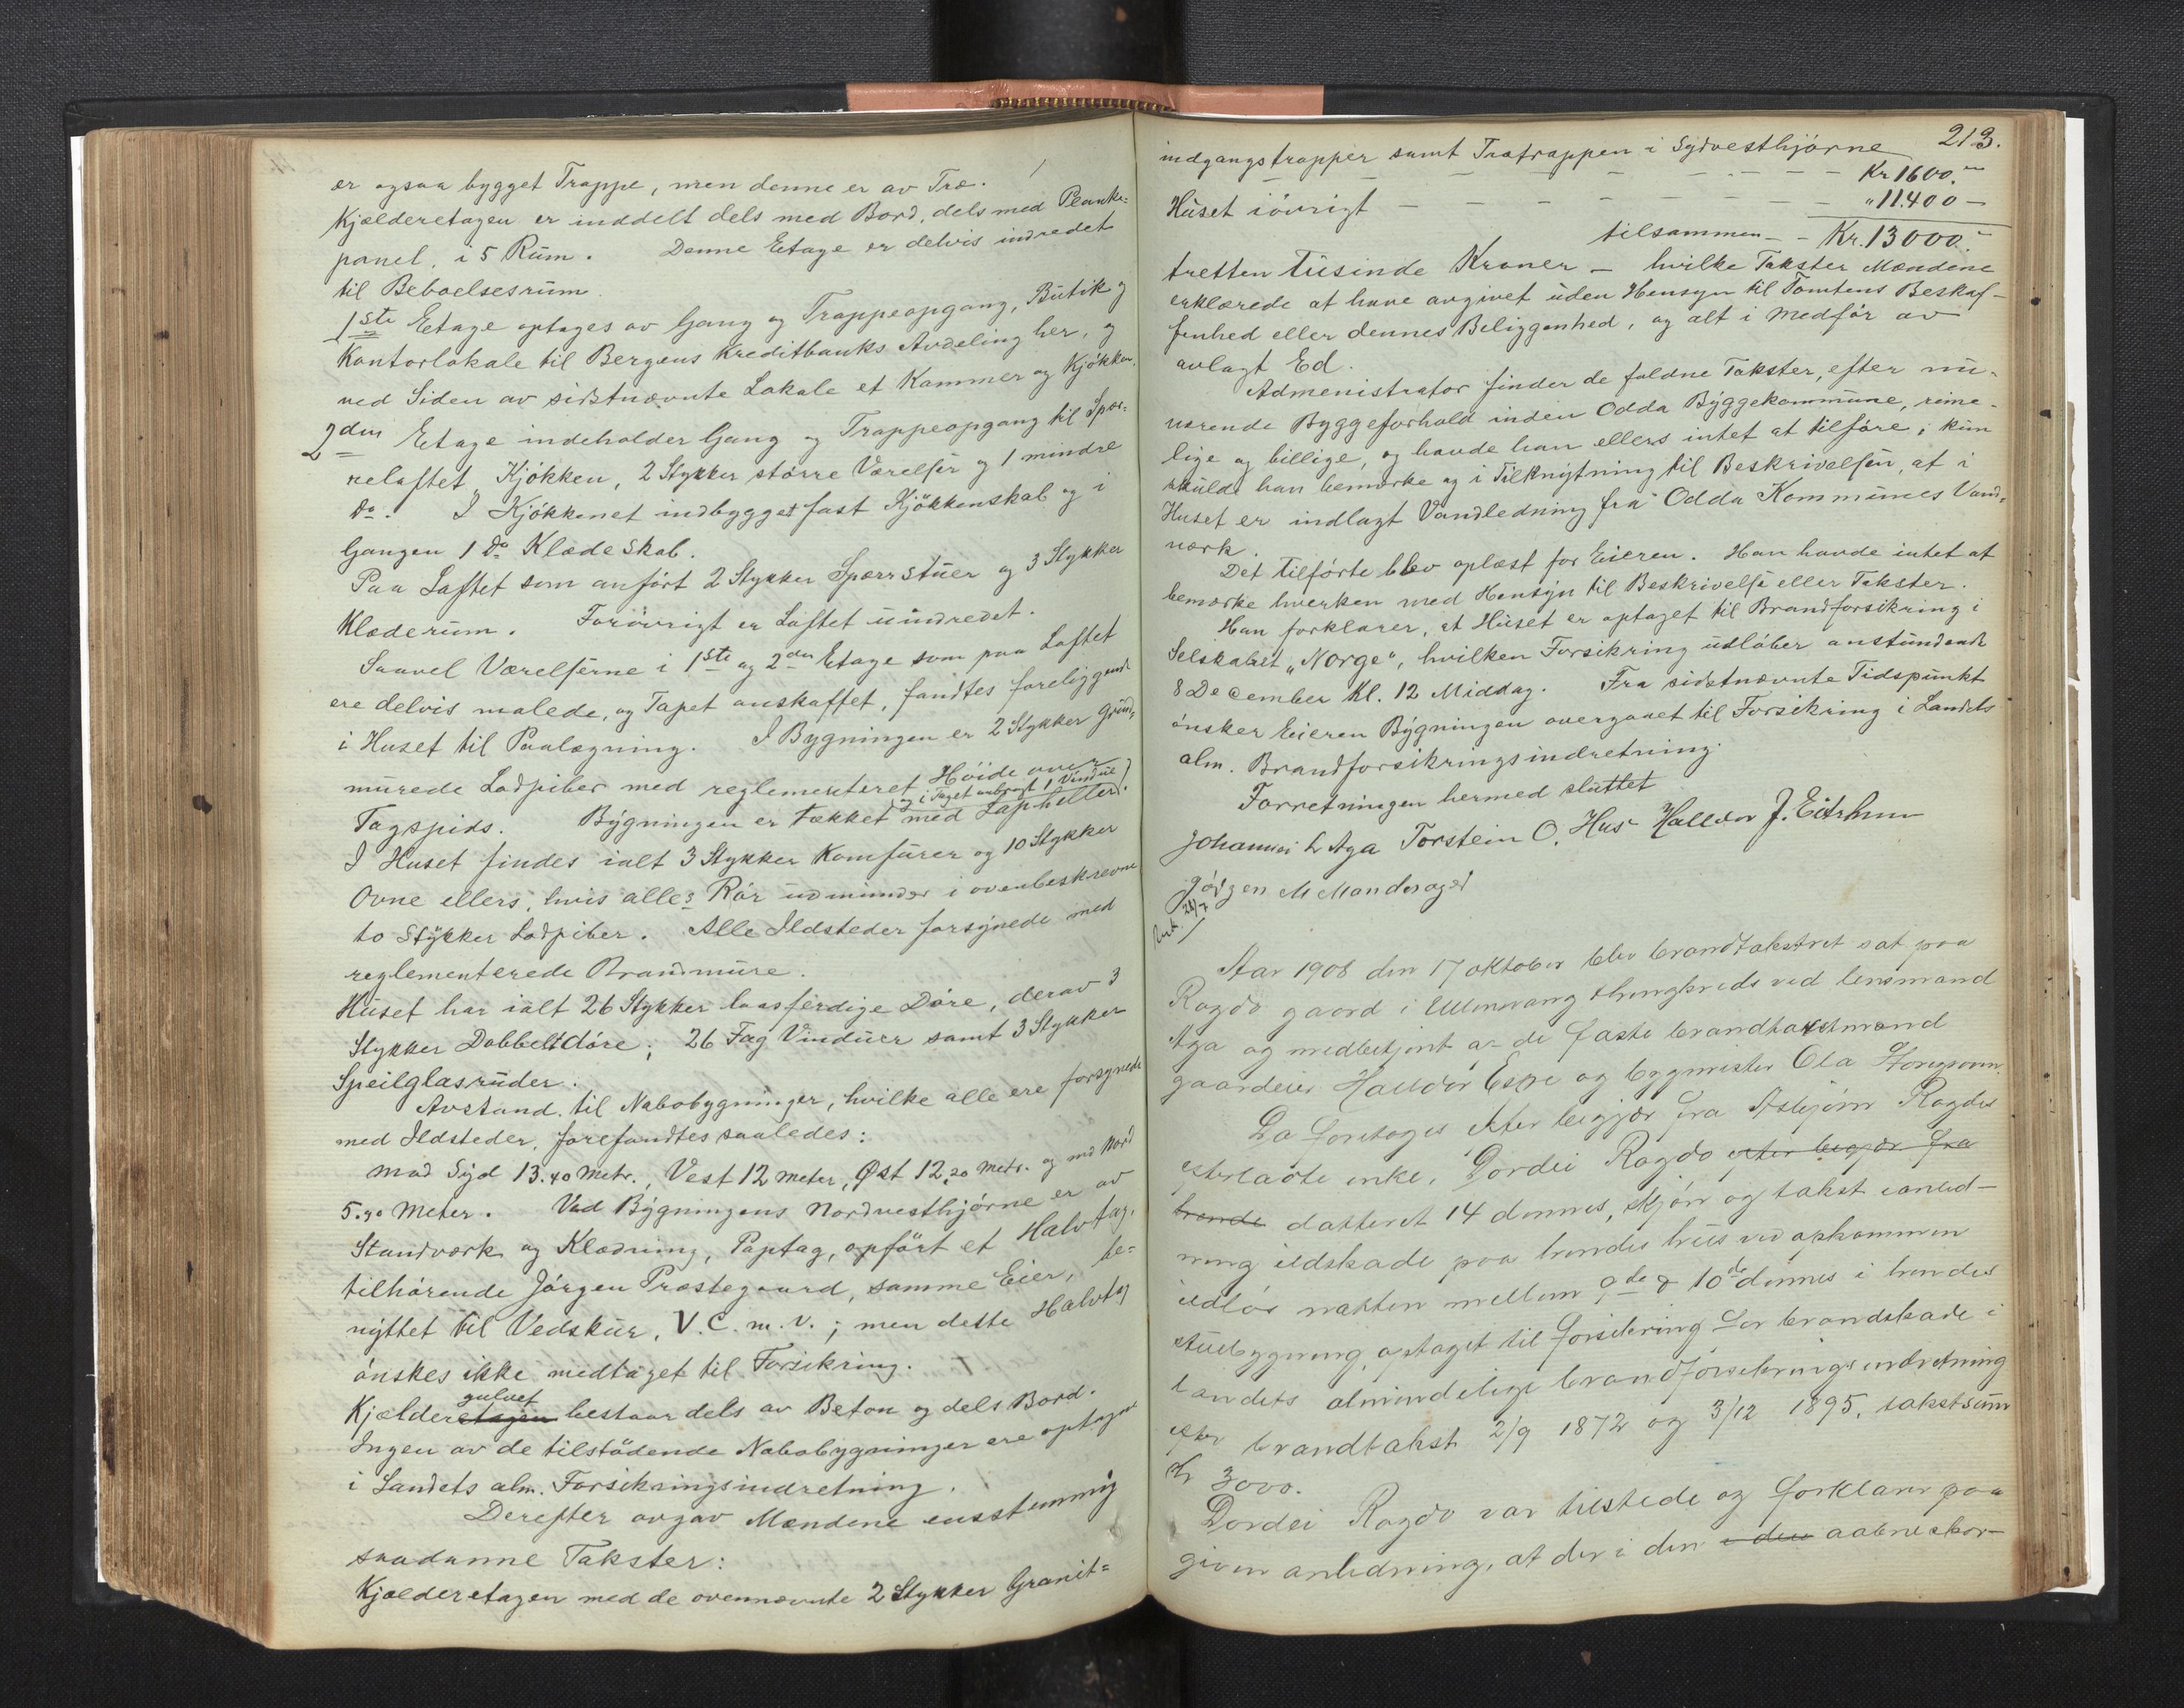 er ogsaa bygget Trappe, men denne er av Træ.
Kjælderetagen er inddelt dels med Bord, dels med Planke-
panel, i 5 Rum. Denne Etage er delvis indredet
til Beboelsesrum.
1ste Etage optages av Gang og Trappeopgang, Butik og
Kontorlokale til Bergens Kreditbanks Avdeling her, og
ved Siden av sidstnævnte Lokale et Kammer og Kjøkken.
2den Etage indeholder Gang og Trappeopgang til Spær-
reloftet, Kjøkken, 2 Stykker större Værelser og 1 mindre
do. I Kjøkkenet indbygget fast Kjøkkenskab og i
Gangen 1 do Klædeskab.
Paa Loftet som anført 2 Stykker Spærrstuer og 3 Stykker
Klæderum. Forövrigt er Loftet uindredet.
Saavel Værelserne i 1ste og 2den Etage som paa Loftet
ere delvis malede, og Tapet anskaffet, fandtes foreliggende
i Huset til Paalægning. I Bygningen er 2 Stykker grund-
murede Ladpiber med reglementeret Höide over
Tagspids. Bygningen er tækket med Lapheller.
og i Taget anbragt 1 Vindue
I Huset findes ialt 3 Stykker Komfurer og 10 Stykker
Ovne ellers, hvis alles Rör udmunder i ovenbeskrevne
to Stykker Ladpiber. Alle Ildsteder forsynede med
reglementerede Brandmure.
Huset har ialt 26 Stykker laasferdige Döre, derav 3
Stykker Dobbeltdöre; 26 Fag Vinduer samt 3 Stykker
Speilglasruder.
Avstand til Nabobygninger, hvilke alle ere forsynede
med Ildsteder, forefandtes saaledes:
mod Syd 13.40 Metr., Vest 12 meter, Øst 12,20 Metr. og mod Nord
5.90 Meter. Ved Bygningens Nordvesthjörne er av
Standværk og Klædning, Paptag, opført et Halvtag,
tilhörende Jörgen Præstegaard, samme Eier, be-
nyttet til Vedskur, V.C. m.v.; men dette Halvtag
önskes ikke medtaget til Forsikring.
Kjælderetagen gulvet bestaar dels av Beton og dels Bord.
Ingen av de tilstödende Nabobygninger ere optagne
i Landets alm. Forsikringsindretning.
Derefter avgav Mændene eenstemmig
saadanne Takster:
Kjælderetagen med de ovennævnte 2 Stykker Granit-
213.
indgangstrapper samt Trætrappen i Sydvesthjörne
Kr 1600.-
Huset iövrigt - - - - - - - " 11.400 -
tilsammen - - Kr. 13000.-
tretten Tusinde Kroner - hvilke Takster Mændene
erklærede at have avgivet uden Hensyn til Tomtens Beskaf-
fenhed eller dennes Beliggenhed, og alt i Medför av
avlagt Ed.
Admenistrator finder de faldne Takster, efter nu-
værende Byggeforhold inden Odda Byggekommune, rime-
lige og billige, og havde han ellers intet at tilföre; kun
skulde han bemærke og i Tilknytning til Beskrivelsen, at i
Huset er indlagt Vandledning fra Odda Kommunes Vand-
værk.
Det tilförte blev oplæst for Eieren. Han havde intet at
bemærke hverken med Hensyn til Beskrivelse eller Takster.
Han forklarer, at Huset er optaget til Brandforsikring i
Selskabet "Norge", hvilken Forsikring udlöber anstundende
8 December Kl. 12 Middag. Fra sidstnævnte Tidspunkt
önsker Eieren Bygningen overgaaet til Forsikring i Landets
alm. Brandforsikringsindretning.
Forretningen hermed sluttet
Johannes L Aga Torstein O. Hus Halldor J. Eitrheim
Jörgen M Mandsager
24/7
Aar 1908 den 17 oktober blev brandtakstret sat paa
Ragde gaard i Ullensvang thinglreds ved lensmand
Aga og medbetjent av de faste brandtakstmænd
gaardeier Halldor Espe og bygmester Ola
Da foretoges efter begjær fra Asbjørn Ragdes
efterladte enke, Dordei Ragde efter begjær fra
hende datteret 14 dennes, skjøn og takst ianled-
ning ildskade paa hendes hus ved opkommen
ildlös natten mellem 9de & 10de dennes i hendes
stuebygning, optaget til forsikring for brandskade i
landets almindelige brandforsikringsindretning
efter brandtakst 2/9 1872 og 3/12 1895, takstsum
kr 3000.
Dordei Ragde var tilstede og forklarer paa
given anledning, at der i den i den aabne skor-